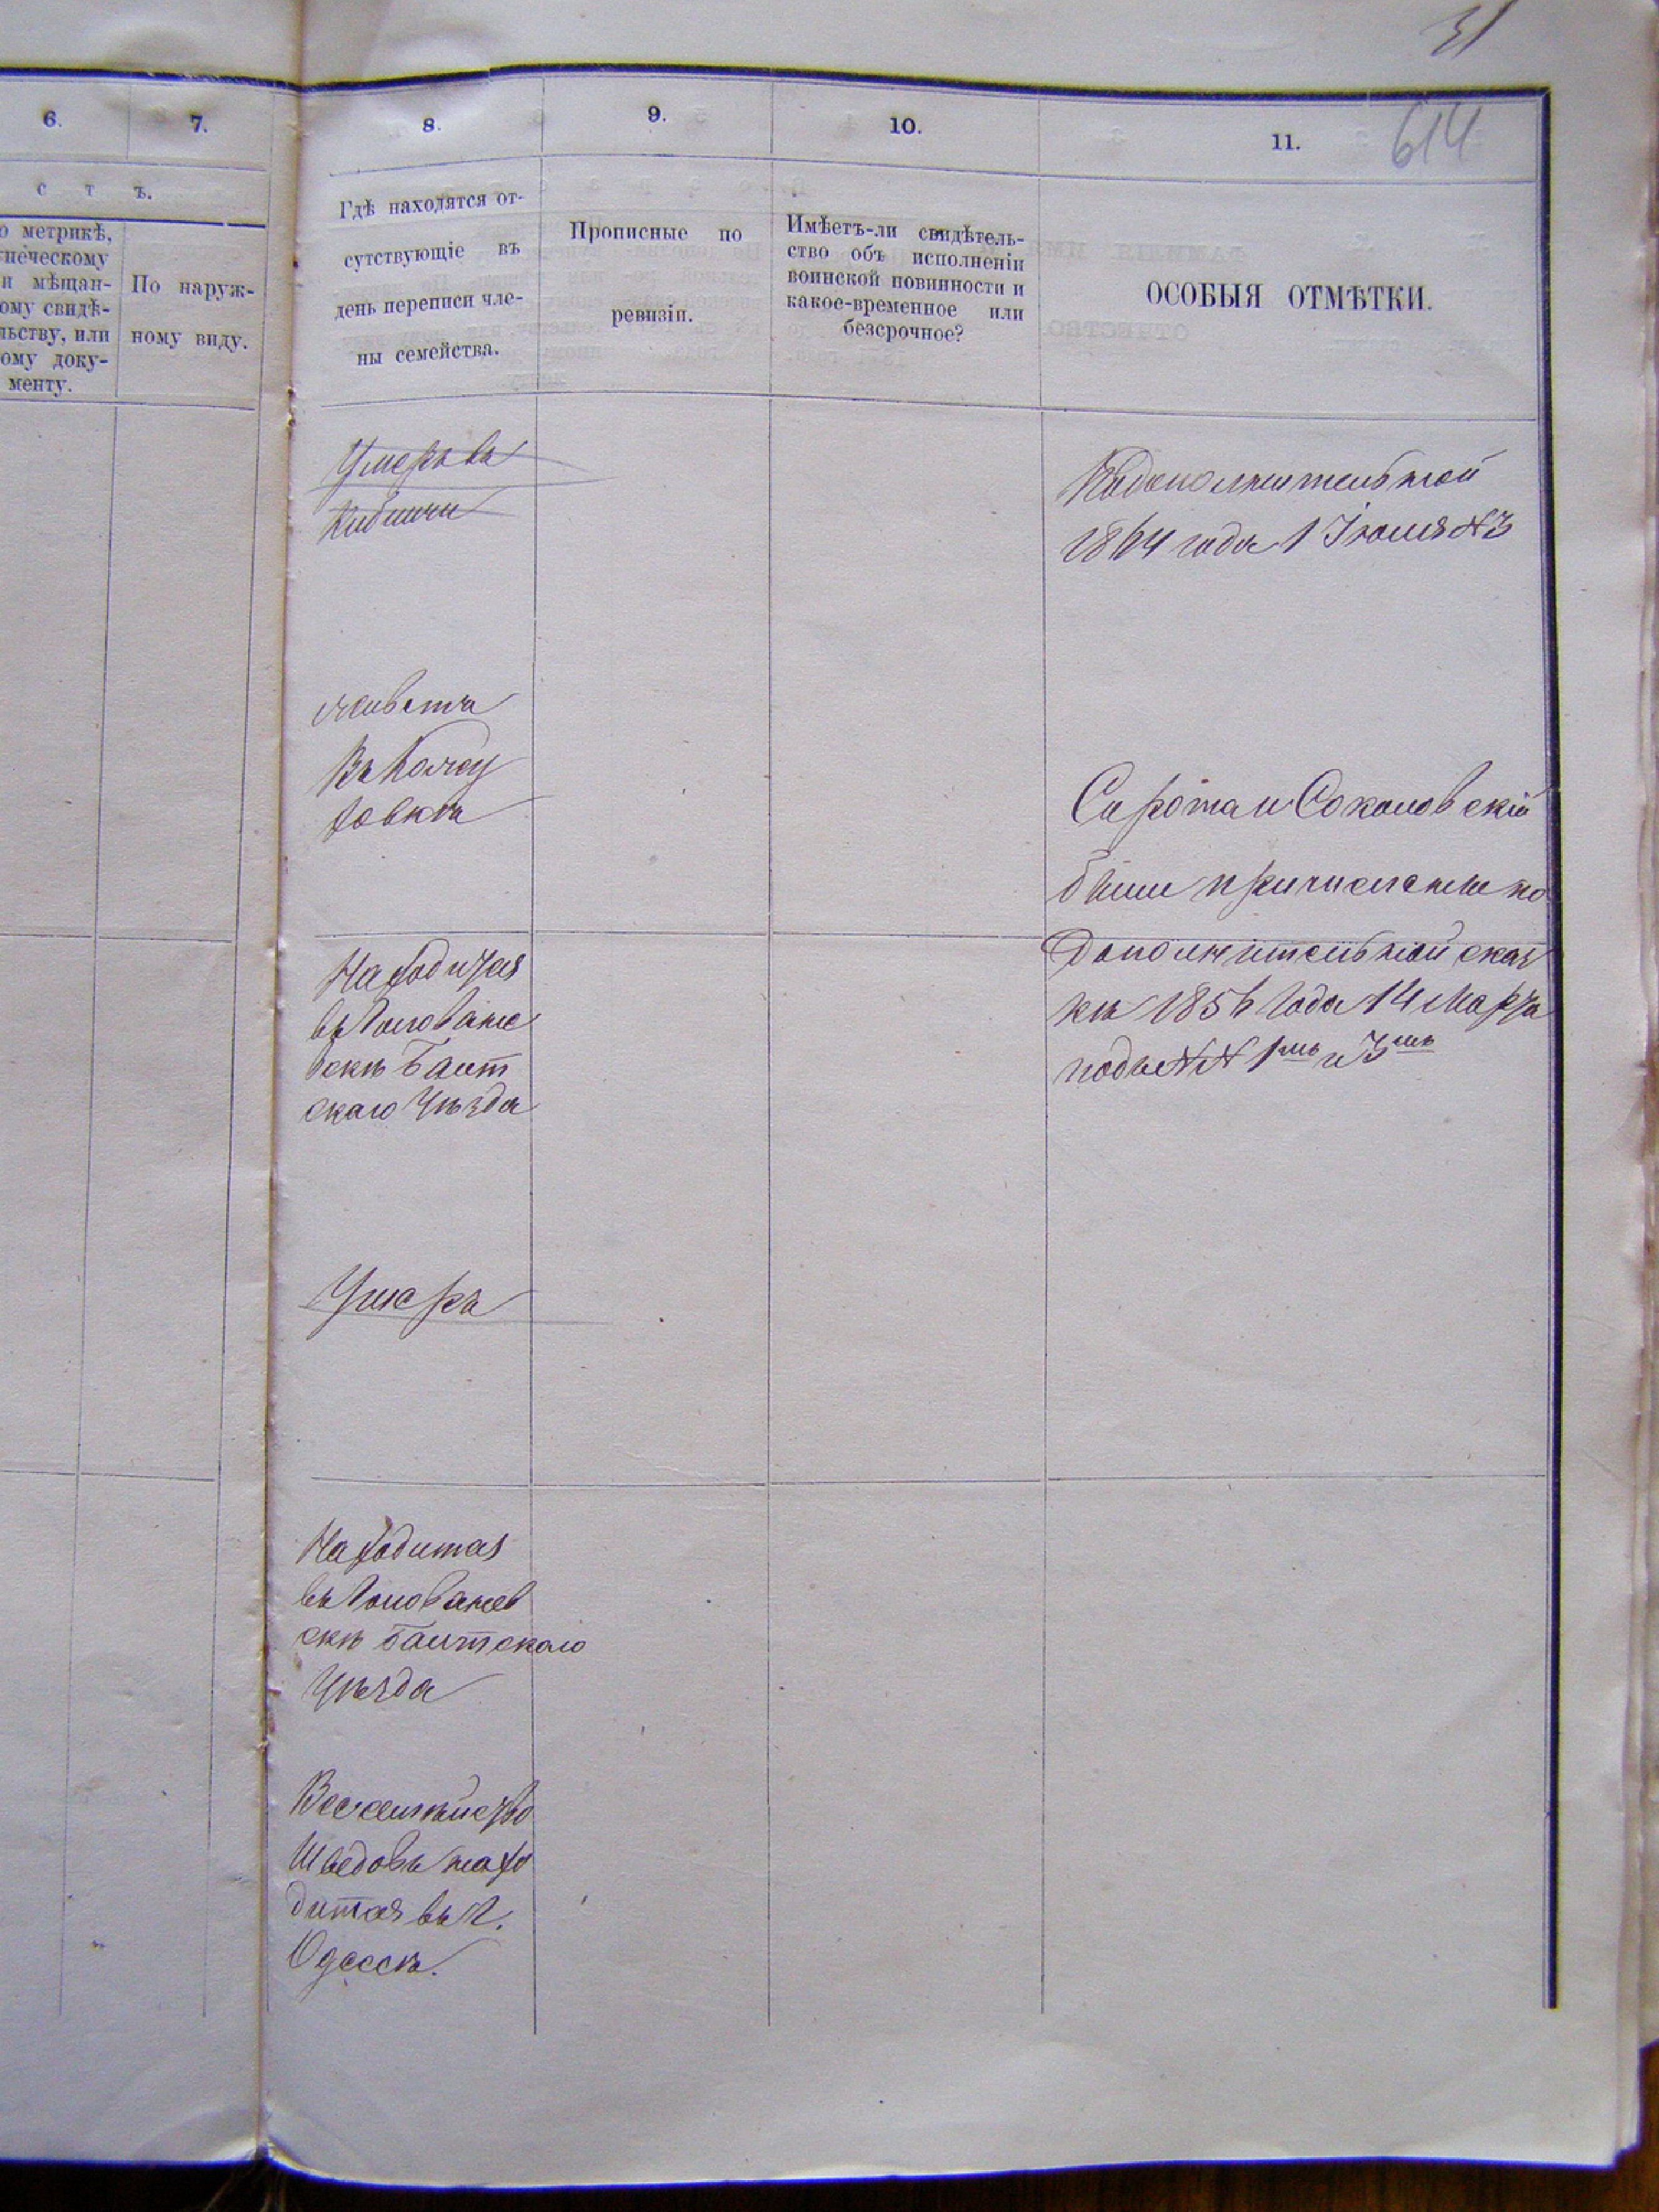 31
6.
7.
8.
9.
10.
11.
614
с т ъ.
о метрикѣ,
печескому
и мѣщан-
ому свидѣ-
льству, или
ому доку-
менту.
По наруж-
ному виду.
Гдѣ находятся от-
сутствующіе въ
день переписи чле-
ны семейства.
Прописные по
ревизіи.
Имѣетъ-ли свидѣтель-
ство объ исполненіи
воинской повинности и
какое-временное или
безсрочное?
ОСОБЫЯ ОТМѢТКИ.
Умеръ въ
Подополнительной
1864 года 1 Іюля №3
живетъ
Въ
Сирота и Соколовскій
были причислены по
Дополнительной сказ
кѣ 1856 Года 14 Марта
подъ №№ 1мъ и 3мъ
Находится
въ Голованев
скѣ Балт
скаго Уѣзда
Умеръ
Находится
въ Голованев
скѣ Балтскаго
Уѣзда
Все семѣйство
Шведовъ нахо
дится въ Г.
Одессѣ.